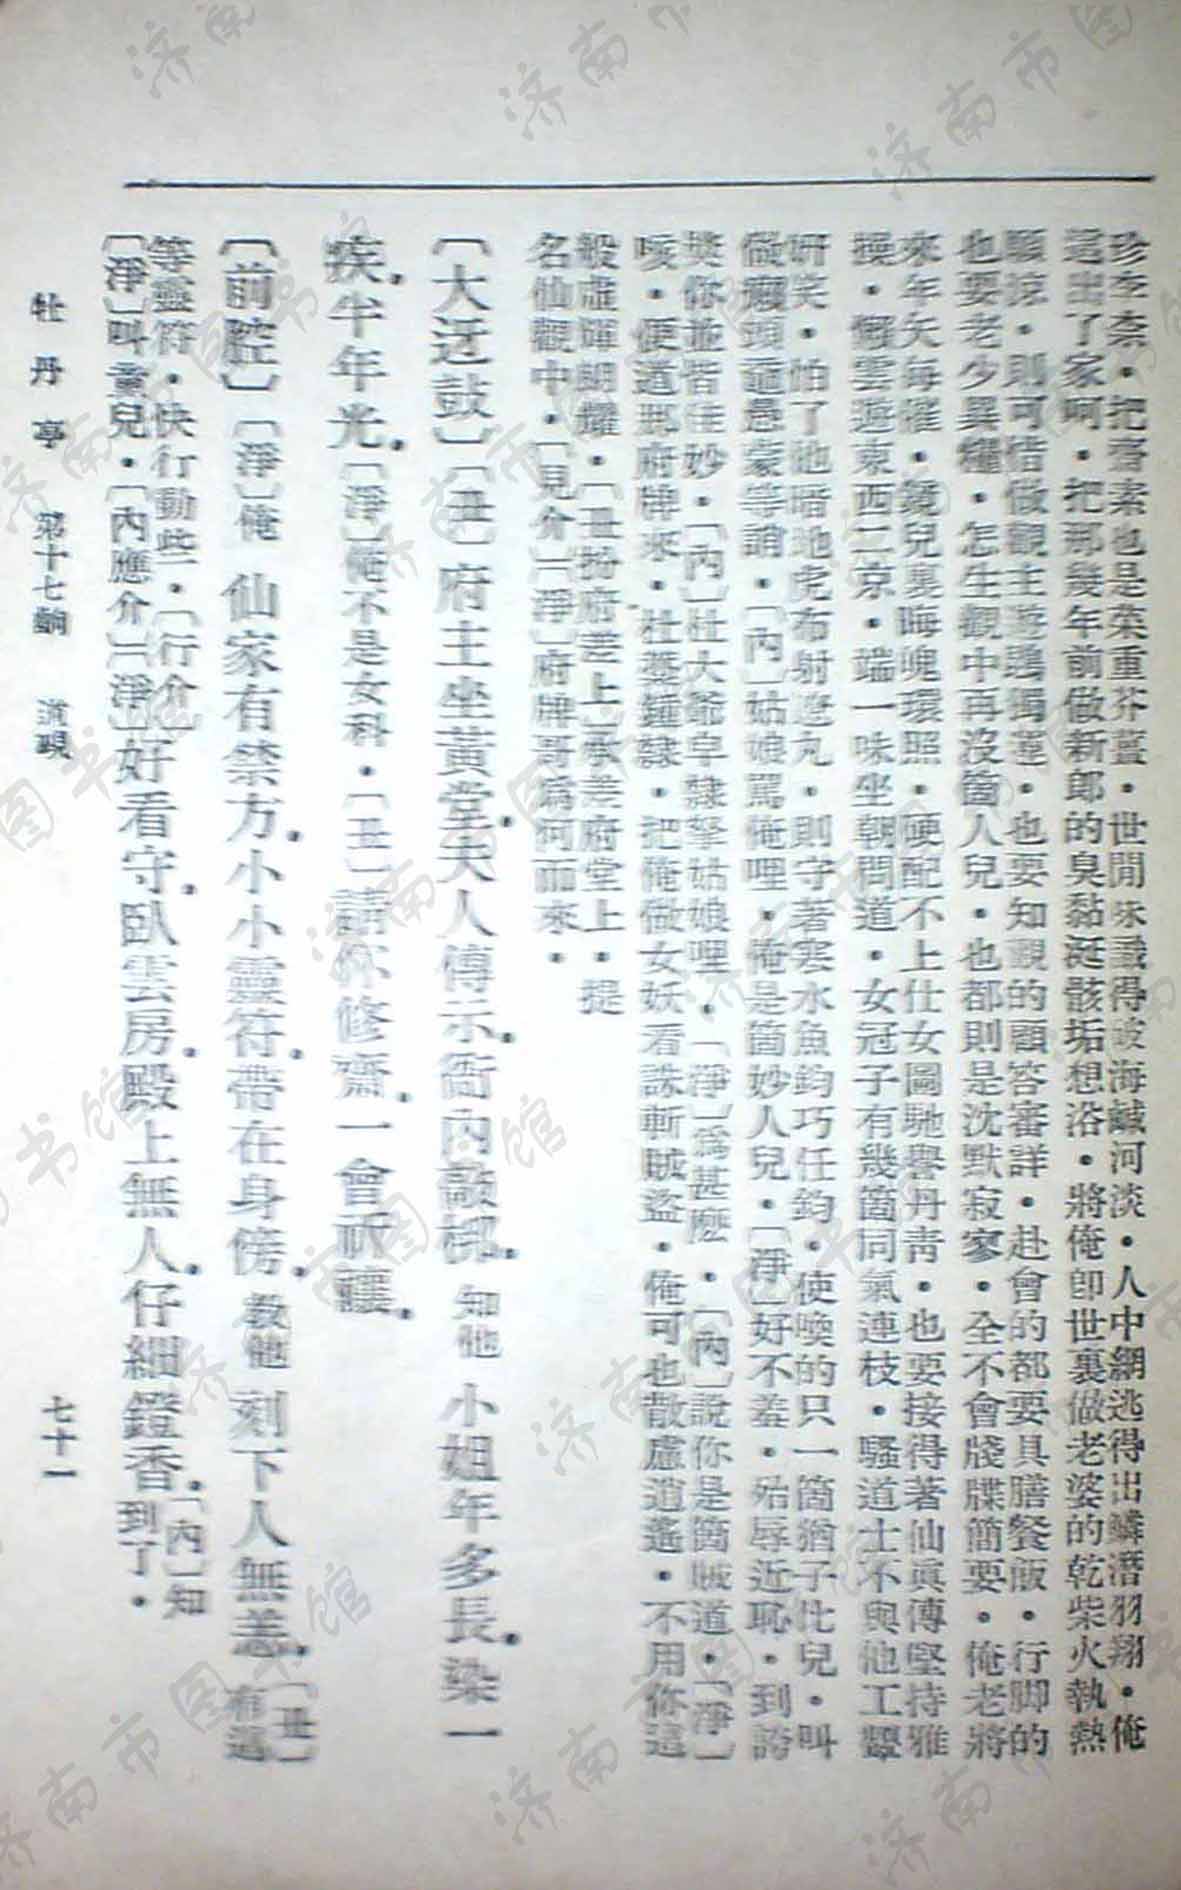 珍李柰・把齋素也是菜重芥薑・世間味識得破海鹹河淡・人中網逃得出鱗潛羽翔・俺
還出了家呵・把那幾年前做新郎的臭黏涎骸垢想浴・將俺即世裏做老婆的乾柴火執熱
願涼・則可惜做觀主游鵾獨運・也要知觀的顧答審詳・赴會的都要具膳餐飯・行脚的
也要老少異糧・怎生觀中再沒箇人兒・也都則是沈默寂寥・全不會牋牒簡要・俺老將
來年矢每催・鏡兒裏晦魄環照・硬配不上仕女圖馳譽丹青・也要接得著仙真傳堅持雅
操・懶雲遊東西二京・端一味坐朝問道・女冠子有幾箇同氣連枝・騷道士不與他工顰
妍笑・怕了他暗地虎布射遼丸・則守著寒水魚鈞巧任釣・使喚的只一箇猶子比兒・叫
做癩頭黿愚蒙等誚・〔內〕姑娘罵俺哩・俺是箇妙人兒・〔淨〕好不羞・殆辱近恥・到誇
獎你並皆佳妙・〔內〕杜太爺皁隸拏姑娘哩・〔淨〕爲甚麼・〔內〕說你是箇賊道・〔淨〕
咳・便道那府牌來・杜藁鍾隸・把俺做女妖看誅斬賊盜・俺可也散慮逍遙・不用你這
般虛輝朗耀・〔丑扮府差上〕承差府堂上・提
名仙觀中・〔見介〕〔淨〕府牌哥爲何而來・
〔大迓鼓〕〔丑〕府主坐黃堂。夫人傳示。衙內敲梆。知他小姐年多長。染一
疾。半年光。〔淨〕俺不是女科・〔丑〕請你修齋。一會祈禳。
〔前腔〕〔淨〕俺仙家有禁方。小小靈符。帶在身傍。教他刻下人無恙。〔丑〕有這
等靈符・快行動些・〔行介〕
〔淨〕叫童兒・〔內應介〕〔淨〕好看守。臥雲房。殿上無人。仔細鐙香。〔內〕知
到了・
牡丹亭　第十七齣　道覡　七十一